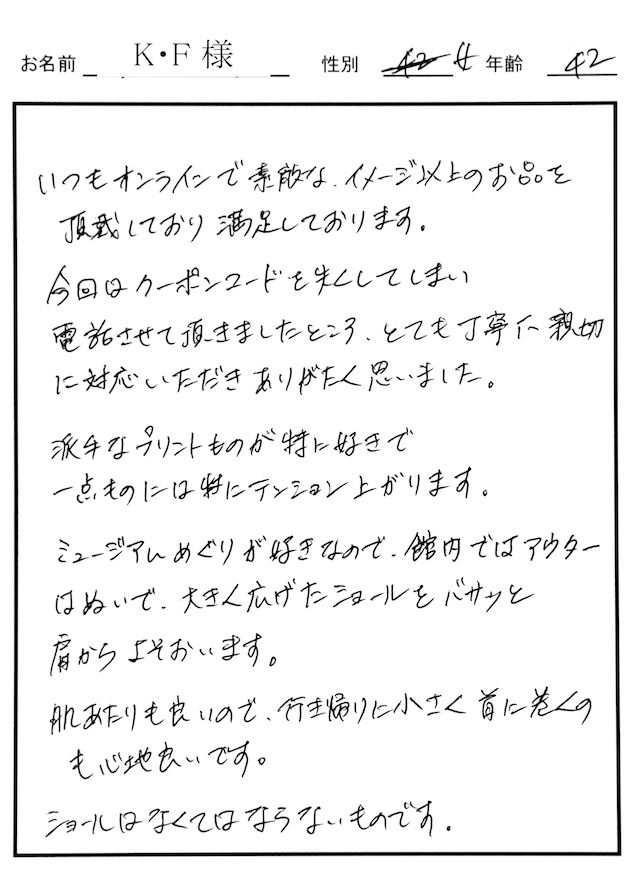 お名前 K・F 様 性別 女 年齢 42
いつもオンラインで素敵な、イメージ以上のお品を
頂戴しており満足しております。
今回はクーポンコードを失くしてしまい
電話させて頂きましたところ、とても丁寧に親切
に対応いただきありがたく思いました。
派手なプリントものが特に好きで
一点ものには特にテンション上がります。
ミュージアムめぐりが好きなので、館内ではアウター
はぬいで、大きく広げたショールをバサッと
肩からよそおいます。
肌あたりも良いので、行き帰りに小さく首に巻くの
も心地良いです。
ショールはなくてはならないものです。